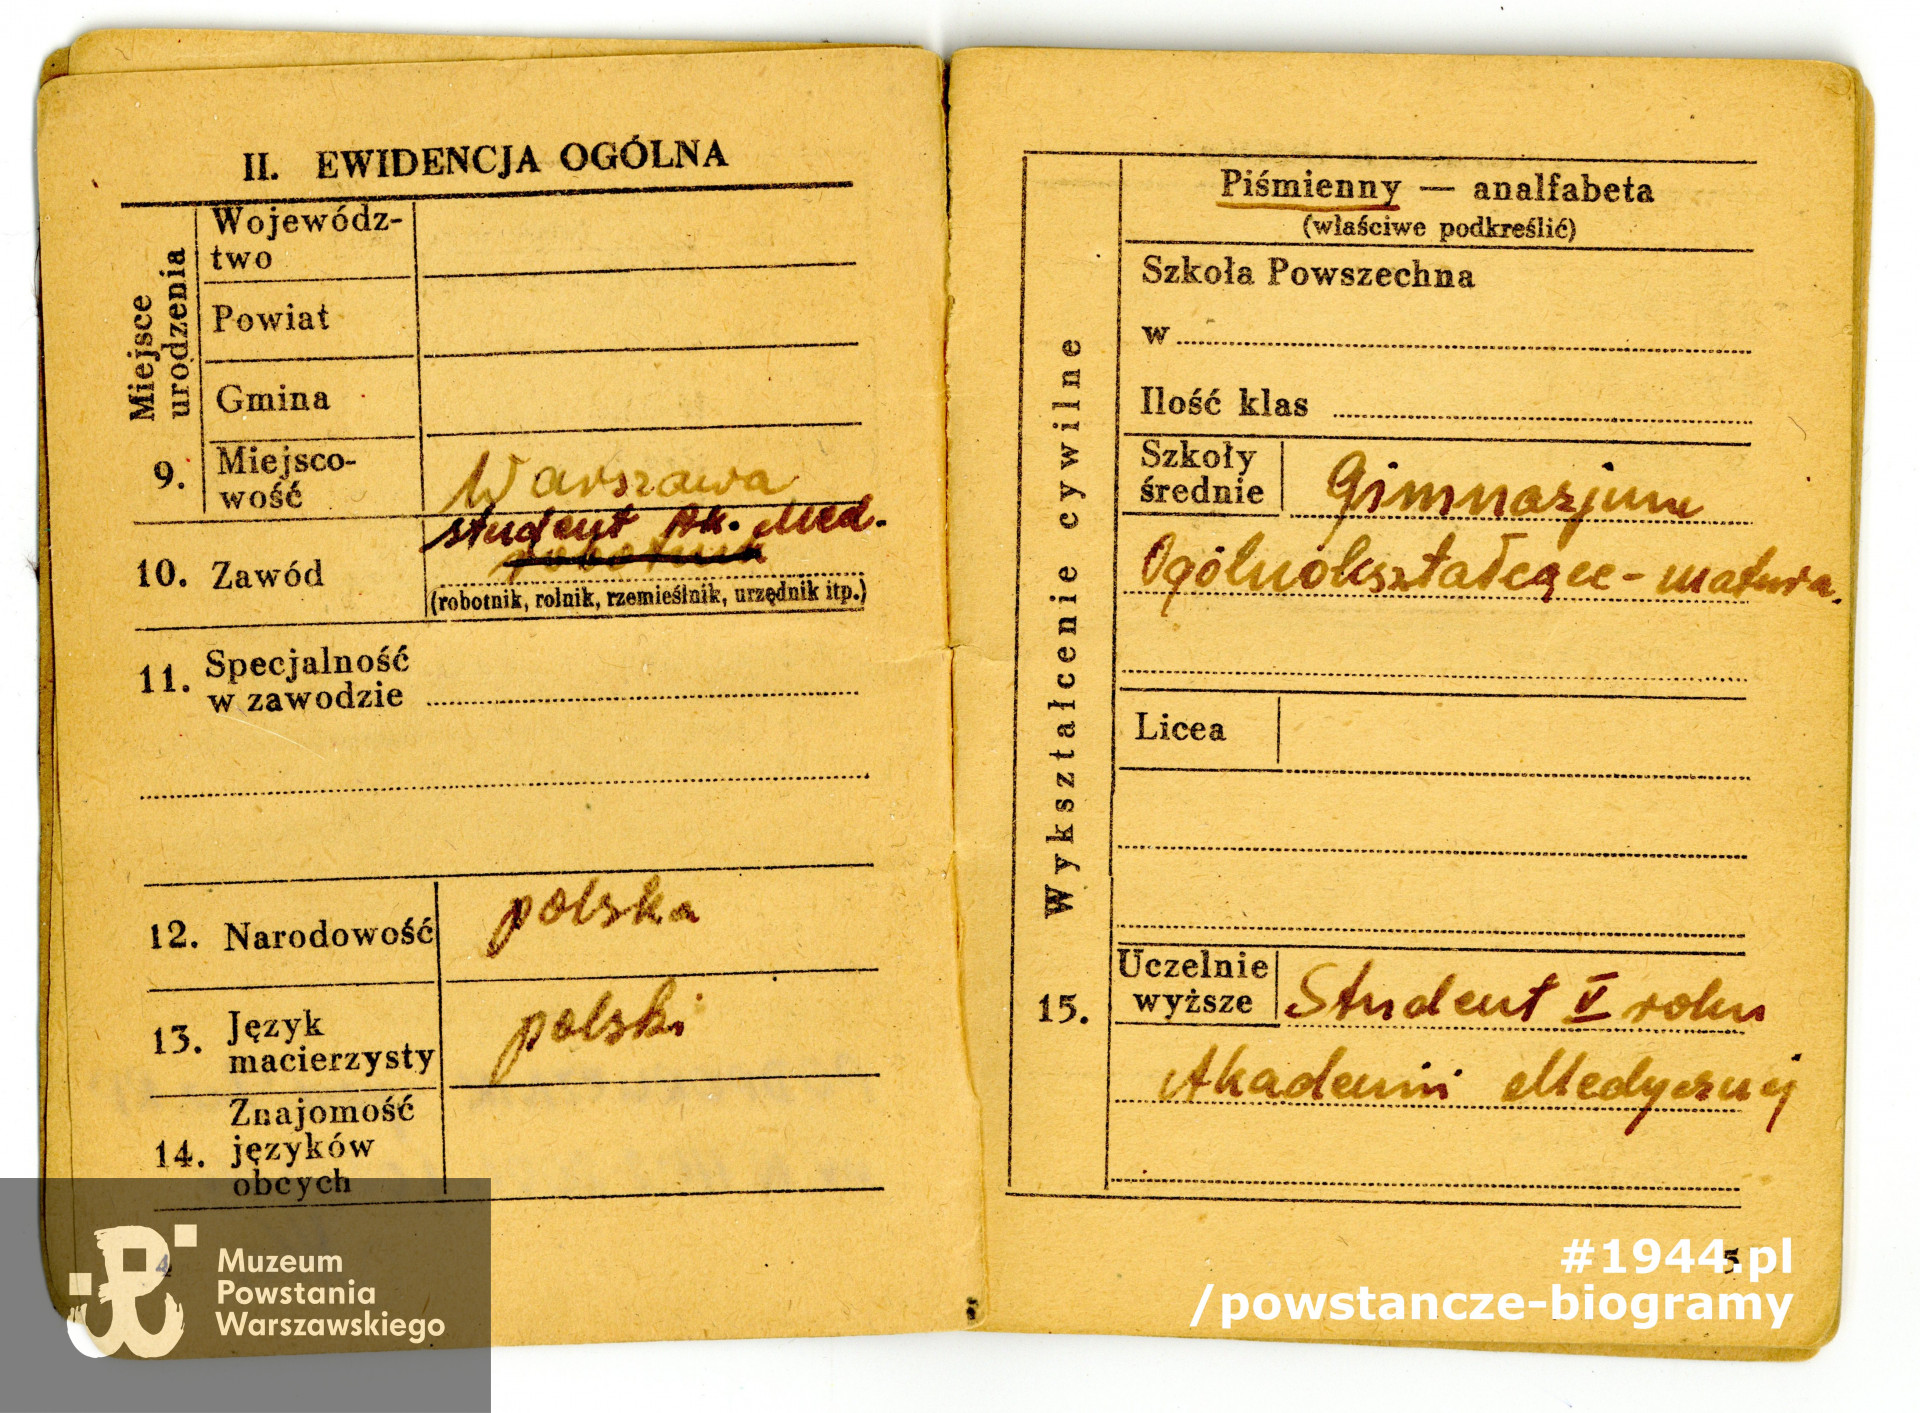 II. EWIDENCJA OGÓLNA
Miejsce
urodzenia
Wojewódz-
two
Powiat
Gmina
9. Miejsco-
wość
Warszawa
student Ak. Med.
robotnik
10. Zawód
(robotnik, rolnik, rzemieślnik, urzędnik itp.)
11. Specjalność
w zawodzie
12. Narodowość polska
13. Język
macierzysty
polski
14. Znajomość
języków
obcych
4
Wykształcenie cywilne
15.
Piśmienny — analfabeta
(właściwe podkreślić)
Szkoła Powszechna
w
Ilość klas
Szkoły
średnie
Gimnazjum
Ogólnokształcące - matura.
Licea
Uczelnie
wyższe
Student V roku
Akademii Medycznej
5
Muzeum
Powstania
Warszawskiego
#1944.pl
/powstancze-biogramy